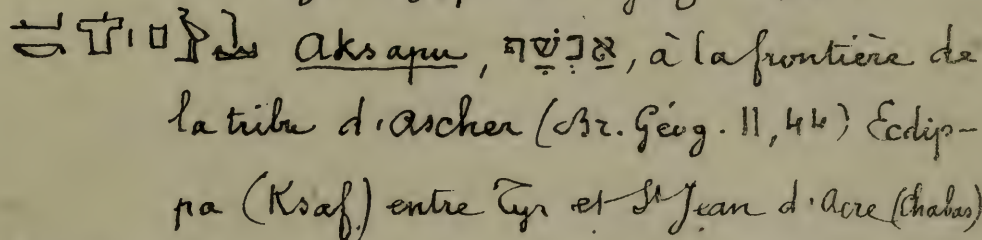 Aksapu, אַכְשָׁף, à la frontière de
la tribu d'Ascher (Br. Géog. II, 44) Ecdip-
pa (Ksaf) entre Tyr et St Jean d'Acre (Chabas)